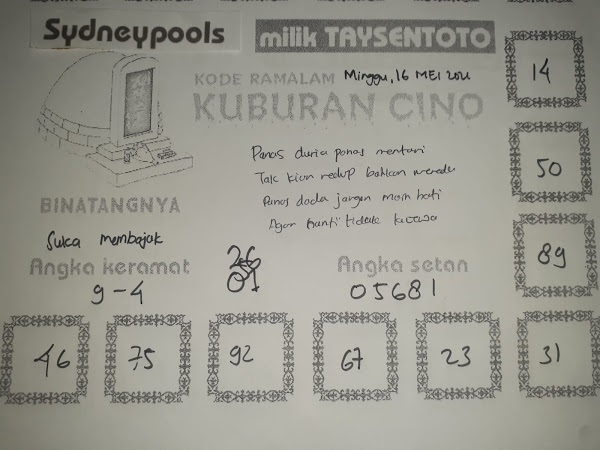 Sydneypools
milik TAYSENTOTO
KODE RAMALAM Minggu, 16 MEI 2021
KUBURAN CINO
14
Panas duria panas mentari
Tak kian redup bahkan
Panas dada jangan main hati
Agar nanti tidak
50
BINATANGNYA
Suka membajak
Angka keramat
9-4
26
01
Angka setan
05681
89
46
75
92
67
23
31